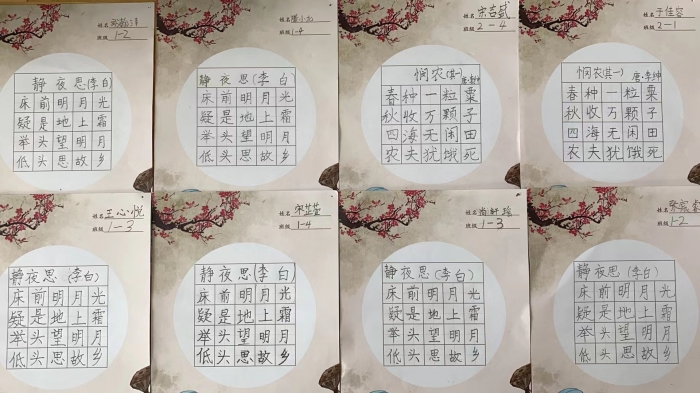 姓名
班级 1-2
静夜思(李白)
床前明月光
疑是地上霜
举头望明月
低头思故乡
姓名
班级 1-4
静夜思(李白)
床前明月光
疑是地上霜
举头望明月
低头思故乡
姓名
班级 2-4
悯农(其一)
唐·李绅
春种一粒粟
秋收万颗子
四海无闲田
农夫犹饿死
姓名 于佳容
班级 2-1
悯农(其一)
唐·李绅
春种一粒粟
秋收万颗子
四海无闲田
农夫犹饿死
姓名 王心悦
班级 1-3
静夜思(李白)
床前明月光
疑是地上霜
举头望明月
低头思故乡
姓名
班级 1-4
静夜思(李白)
床前明月光
疑是地上霜
举头望明月
低头思故乡
姓名 尚轩瑶
班级 1-3
静夜思(李白)
床前明月光
疑是地上霜
举头望明月
低头思故乡
姓名
班级 1-2
静夜思(李白)
床前明月光
疑是地上霜
举头望明月
低头思故乡